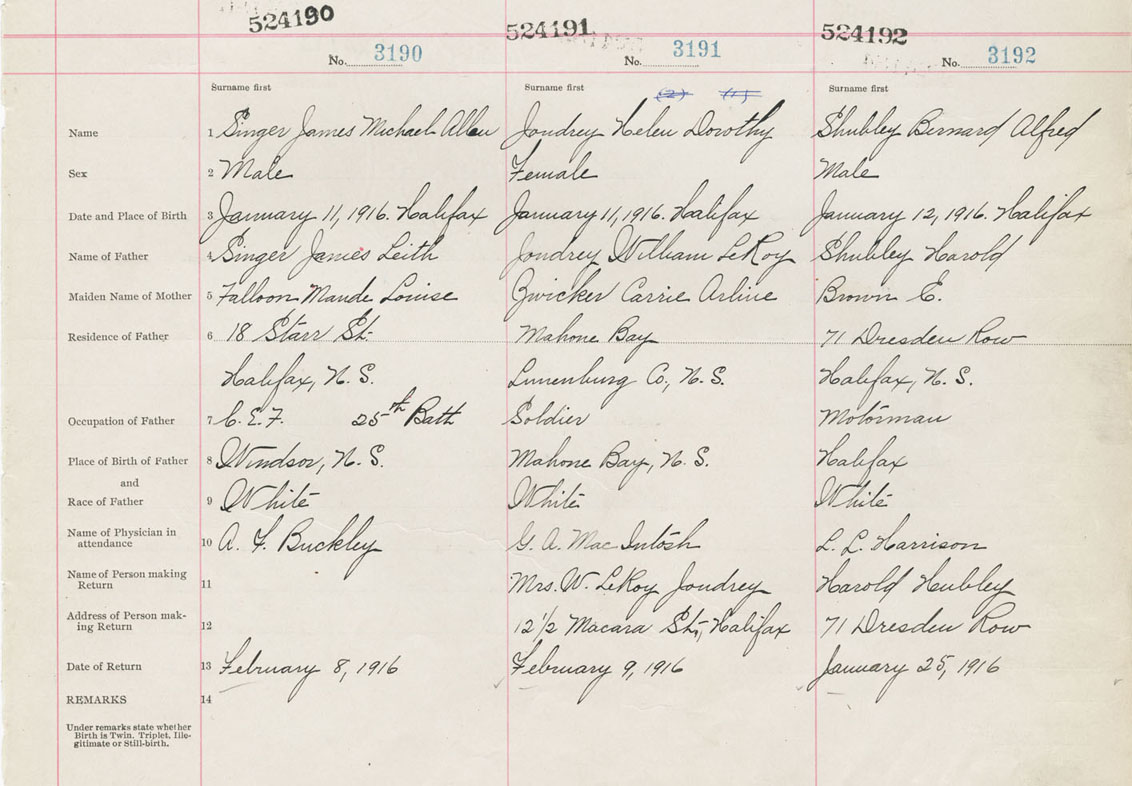 524190 524191 524192
No. 3190 No. 3191 No. 3192
Surname first Surname first Surname first
(2) (1)
Name 1 Singer James Michael Allen Joudrey Helen Dorothy Shubley Bernard Alfred
Sex 2 Male Female Male
Date and Place of Birth 3 January 11, 1916. Halifax January 11, 1916. Halifax January 12, 1916. Halifax
Name of Father 4 Singer James Leith Joudrey William LeRoy Shubley Harold
Maiden Name of Mother 5 Falloon Maude Louise Zwicker Carrie Arline Brown E.
Residence of Father 6 18 Starr St. Mahone Bay 71 Dresden Row
Halifax, N.S. Lunenburg Co, N.S. Halifax, N.S.
Occupation of Father 7 C.E.F. 25th Batt Soldier Motorman
Place of Birth of Father 8 Windsor, N.S. Mahone Bay, N.S. Halifax
and
Race of Father 9 White White White
Name of Physician in
attendance 10 A. F. Buckley G. A. Mac Intosh L. L. Harrison
Name of Person making
Return 11 Mrs. W. LeRoy Joudrey Harold Hubley
Address of Person mak-
ing Return 12 12 1/2 Macara St., Halifax 71 Dresden Row
Date of Return 13 February 8, 1916 February 9, 1916 January 25, 1916
REMARKS 14
Under remarks state whether
Birth is Twin, Triplet, Ille-
gitimate or Still-birth.